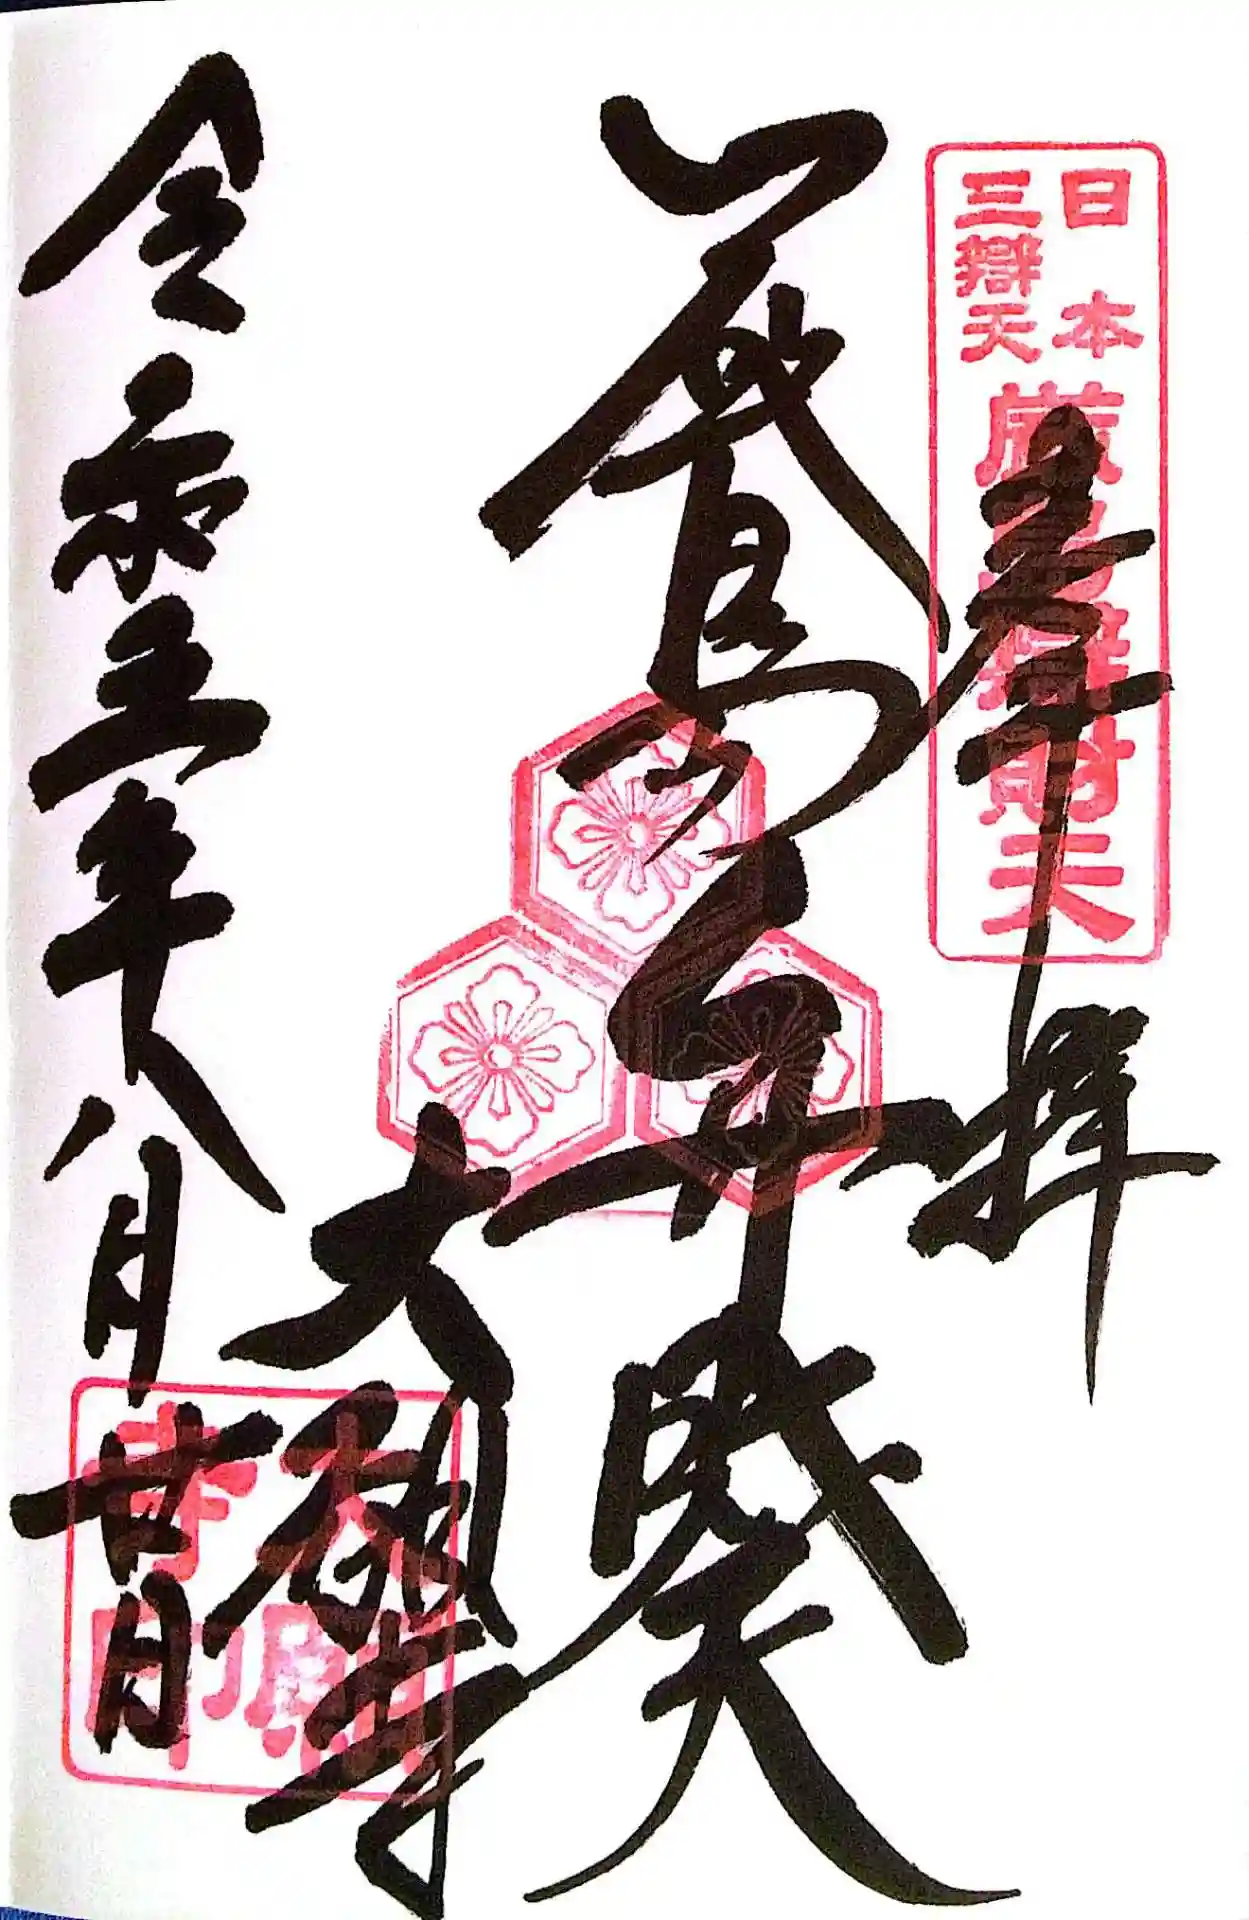 日本
三辯天
厳島辯財天
奉拝
厳島弁財天
大願寺
大願
寺印
令和五年八月廿日